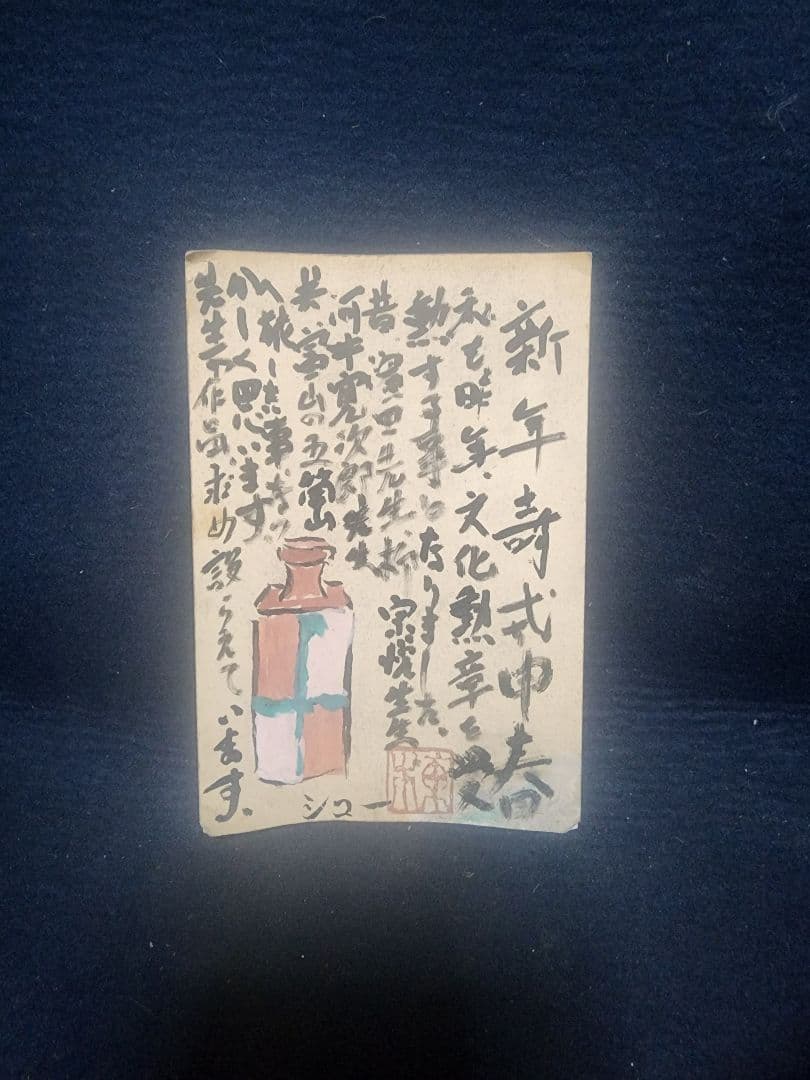 新年寿戊申春
私も昨年、文化勲章を受
勲する事となりました、
昔、濱田先生、柳宗悦先生
河井寛次郎先生
共、富山の五箇山
へ旅した事、なつ
かしく思います
先生の作品、求め設らえています。
シコー